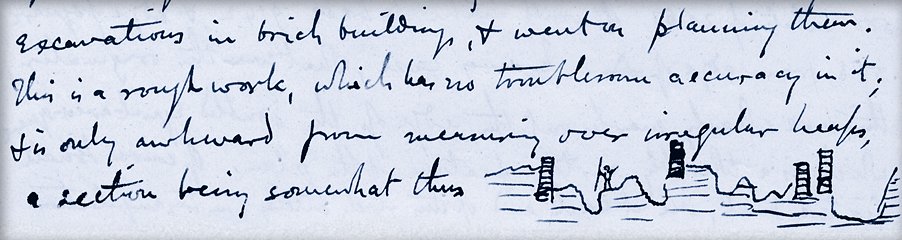 excavations in brick buildings, & went on planning them.
This is a rough work, which has no troublesome accuracy in it,
& is only awkward from measuring over irregular heaps,
a section being somewhat thus